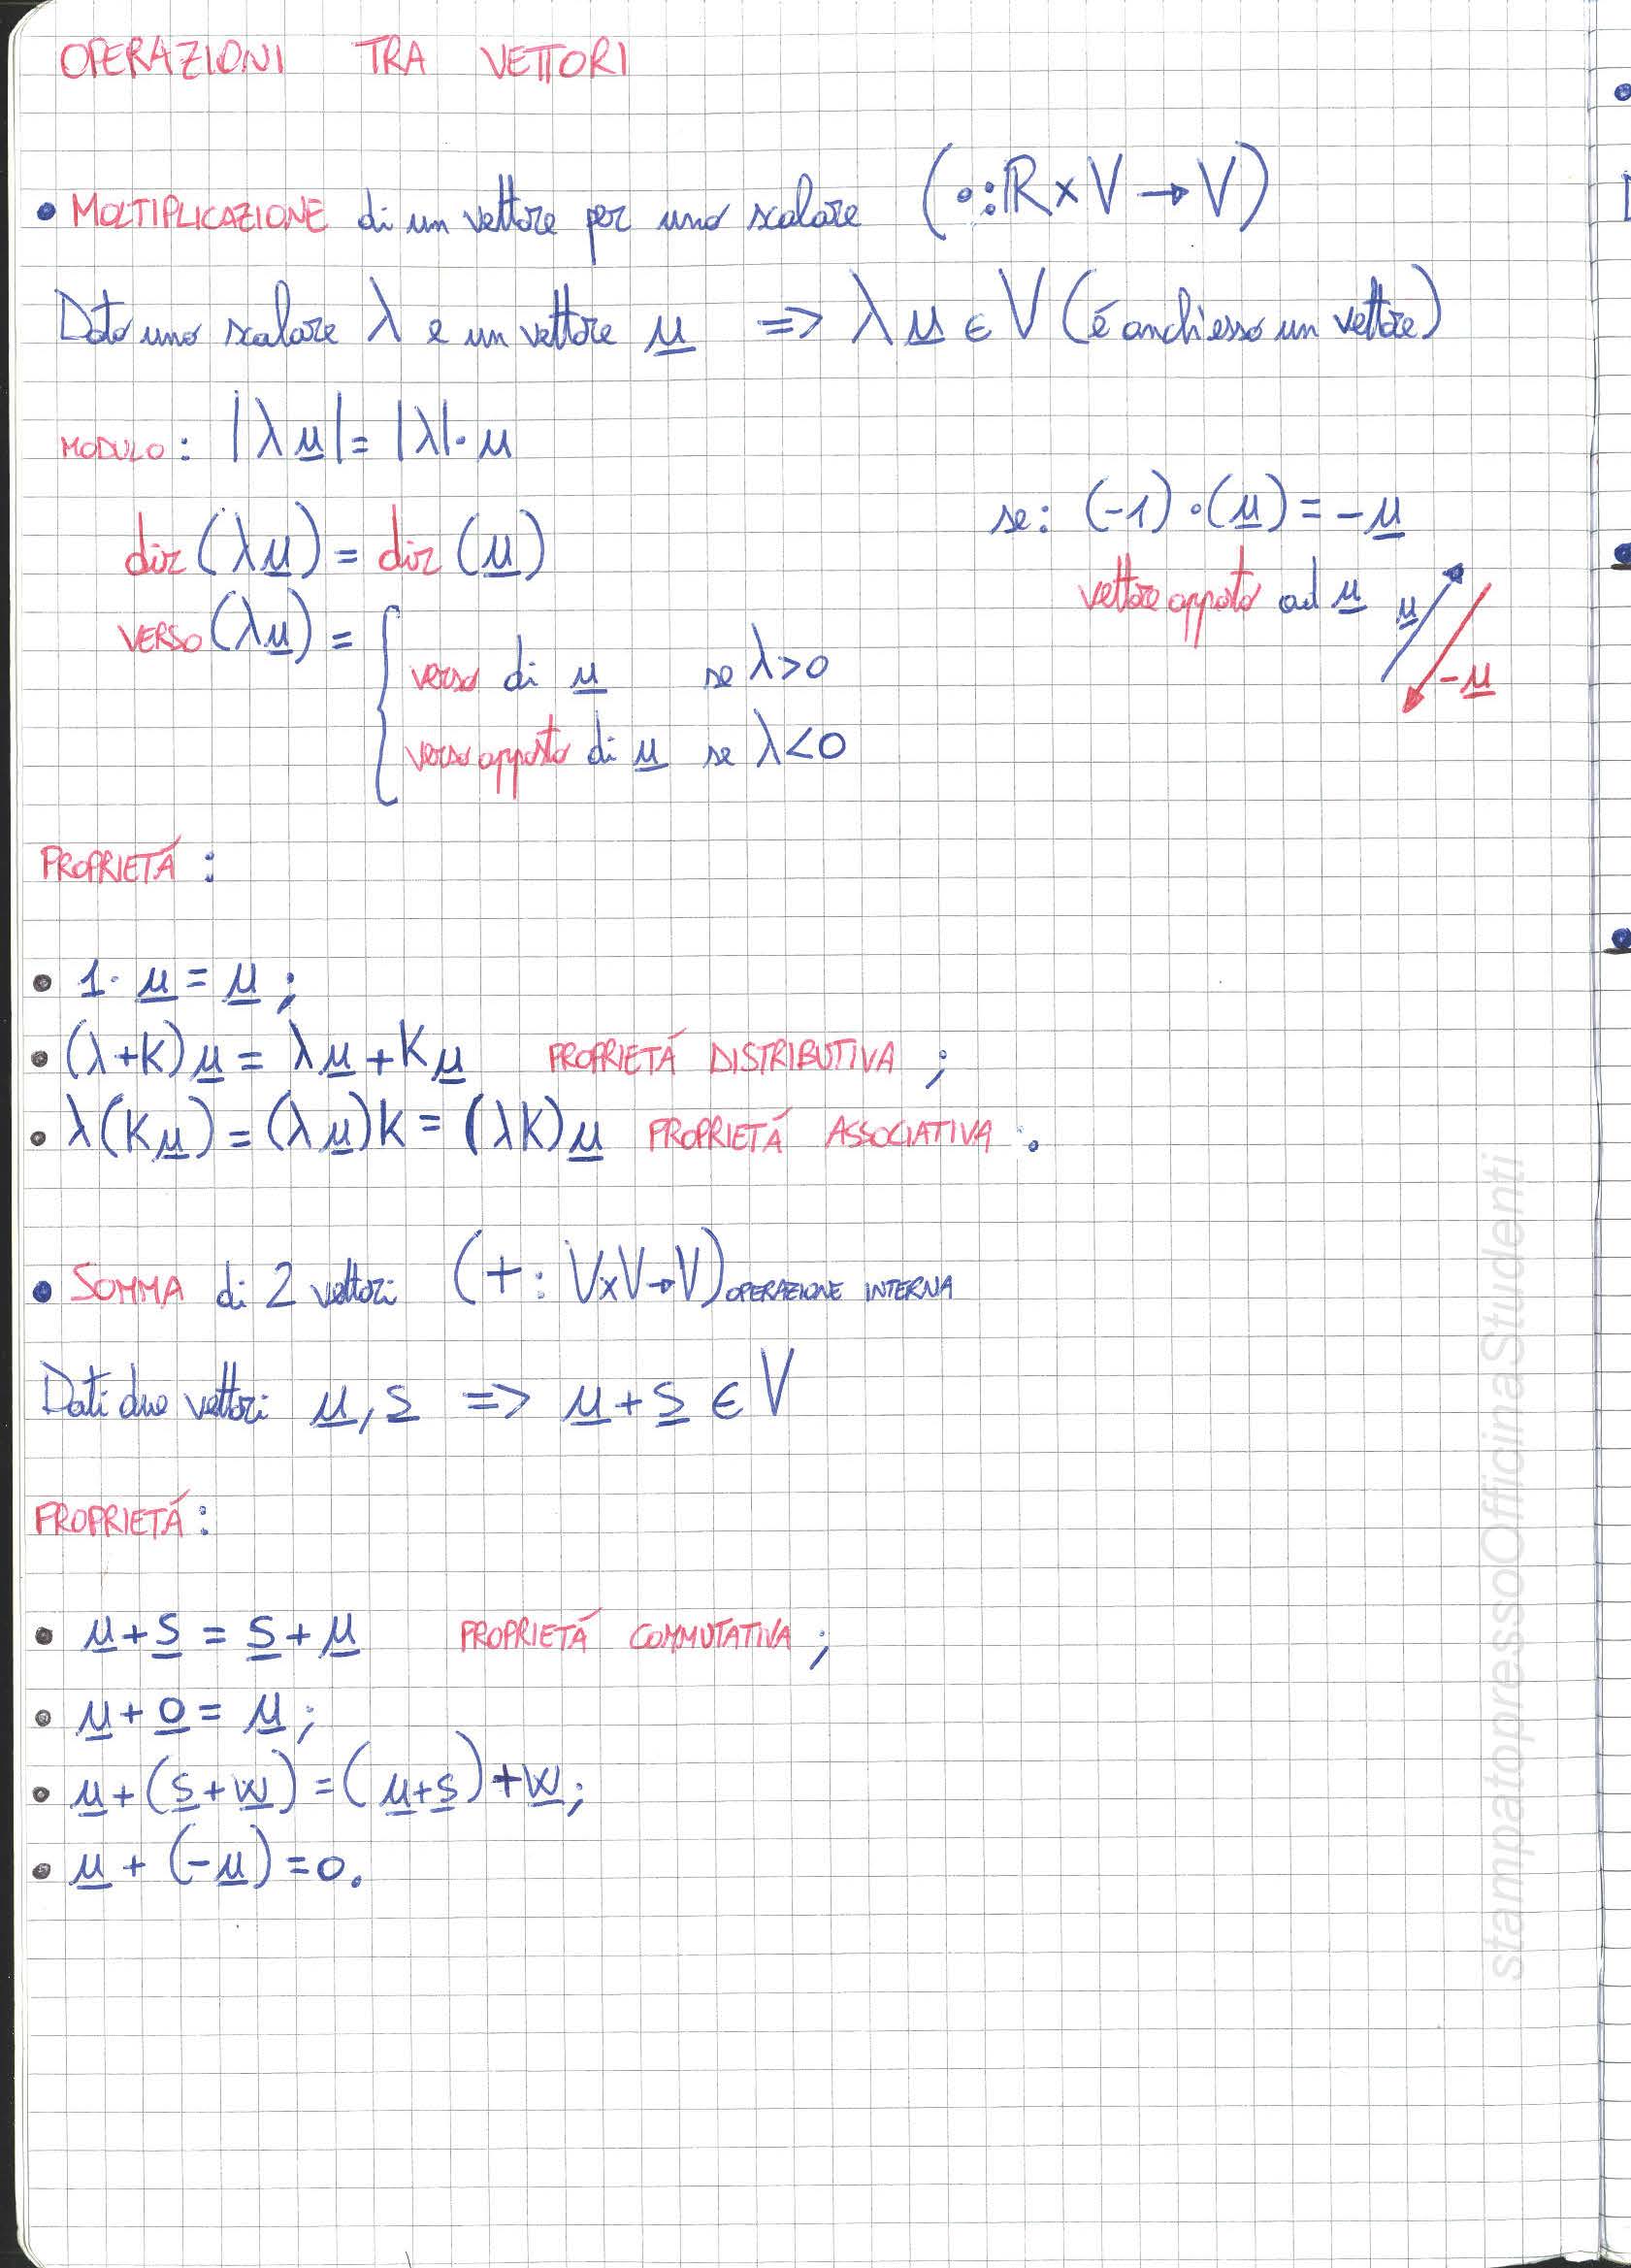 OPERAZIONI TRA VETTORI
• MOLTIPLICAZIONE di un vettore per uno scalare (•: ℝ×V→V)
Dato uno scalare λ e un vettore u̲ => λu̲ ∈ V (é anch'esso un vettore)
MODULO: |λu̲| = |λ|·u
dir (λu̲) = dir (u̲)
VERSO (λu̲) = { verso di u̲ se λ>0
verso opposto di u̲ se λ<0
se: (-1)·(u̲) = -u̲
vettore opposto ad u̲
u̲
-u̲
PROPRIETÁ :
• 1· u̲ = u̲ ;
• (λ+K)u̲ = λu̲ + Ku̲ PROPRIETÁ DISTRIBUTIVA ;
• λ(Ku̲) = (λu̲)K = (λK)u̲ PROPRIETÁ ASSOCIATIVA :.
• SOMMA di 2 vettori (+ : V×V→V) OPERAZIONE INTERNA
Dati due vettori u̲, s̲ => u̲ + s̲ ∈ V
PROPRIETÁ :
• u̲ + s̲ = s̲ + u̲ PROPRIETÁ COMMUTATIVA ;
• u̲ + 0̲ = u̲ ;
• u̲ + (s̲ + w̲) = (u̲ + s̲) + w̲ ;
• u̲ + (-u̲) = 0.
stampatopressoOfficinaStudenti